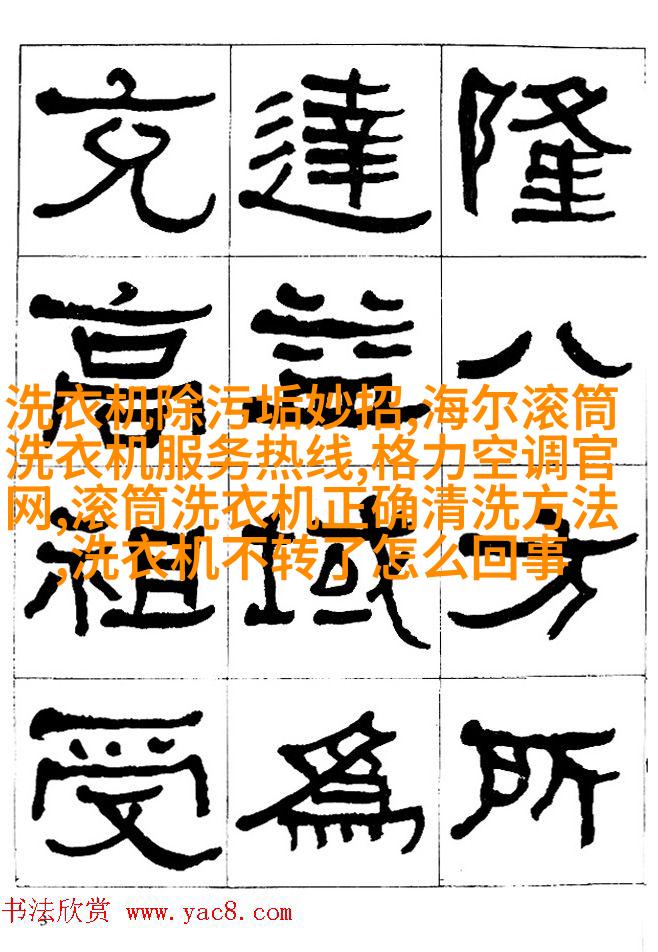 隆八方所
達益域為
充高祖受
洗衣机除污垢妙招,海尔滚筒
洗衣机服务热线,格力空调官
网,滚筒洗衣机正确清洗方法
,洗衣机不转了怎么回事
书法欣赏 www.yac8.com
3